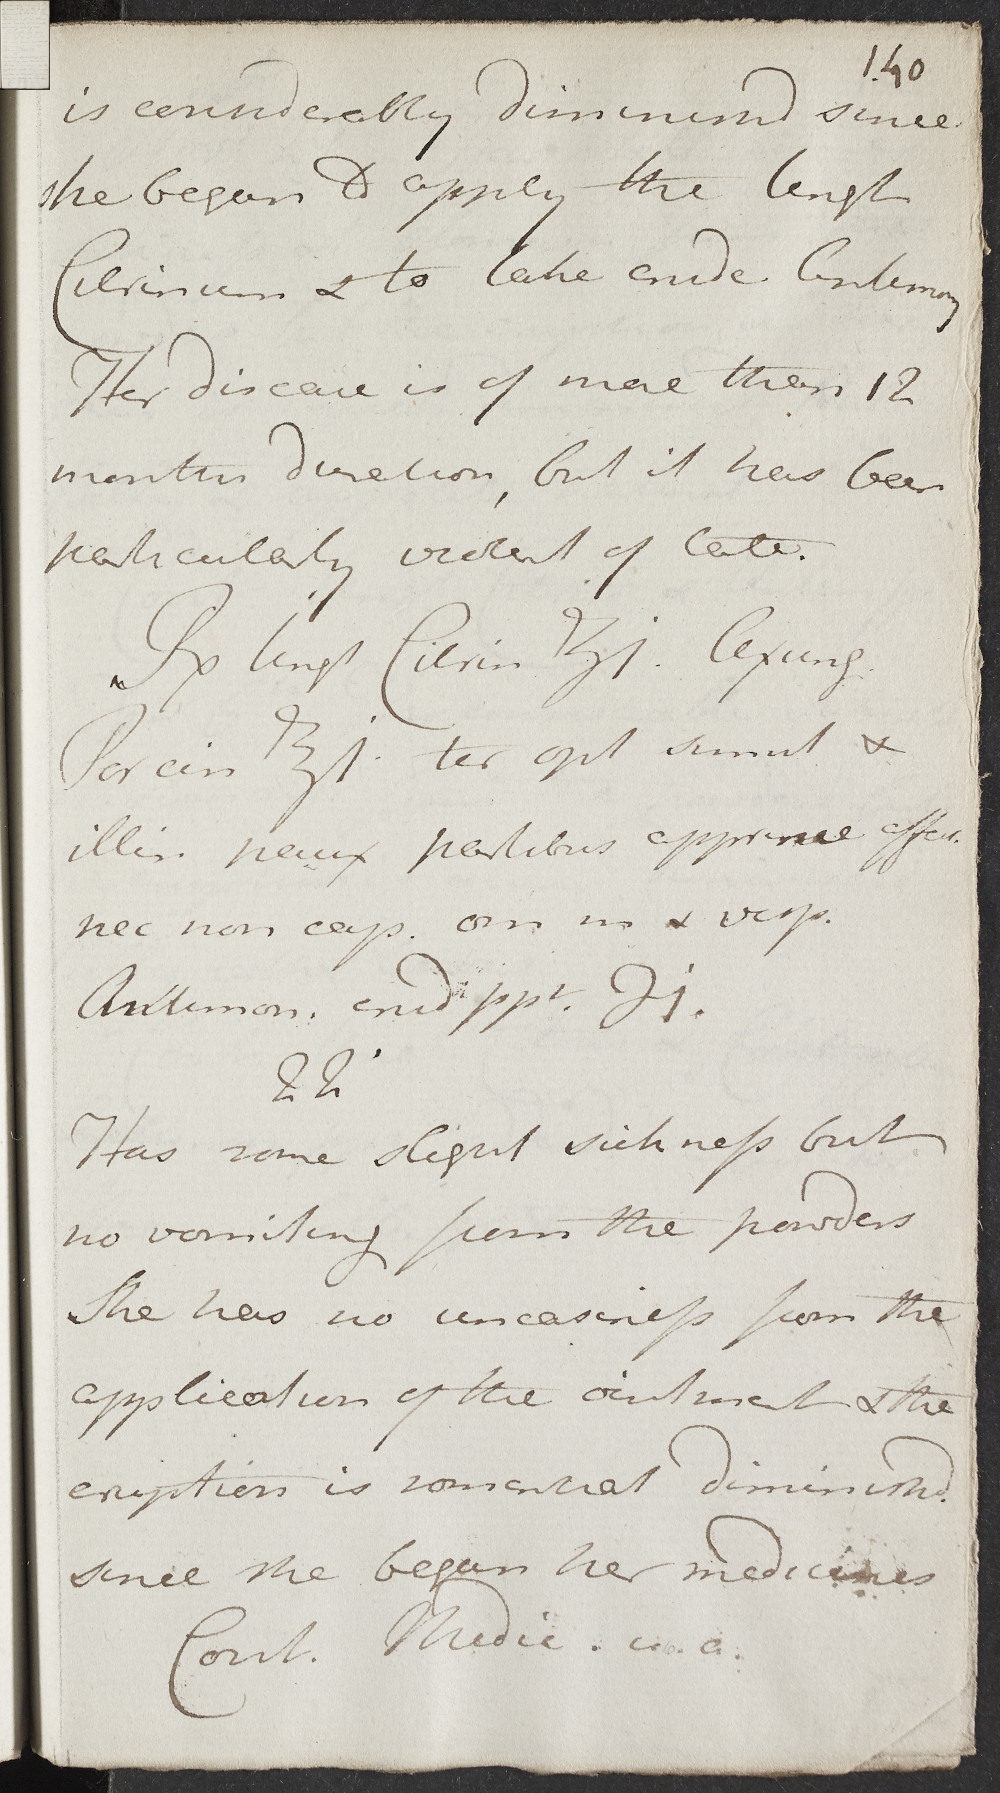 140
is considerably diminish'd since
she began to apply the Ungt
Citrinum & to take crude Antimony
Her disease is of more than 12
months duration, but it has been
particularly violent of late.
Rx Ungt Citrin ℥j. Axung.
Porcin ℥j. ter opt simul &
illin paux partibus apprime affect.
nec non cap. om m & vesp.
Antimon. crud ppt. ℈j.
22
Has some slight sickness but
no vomiting from the powders
She has no uneasiness from the
application of the ointment & the
eruption is somewhat diminish'd
since she began her medicines
Cont. Medic. u.a.